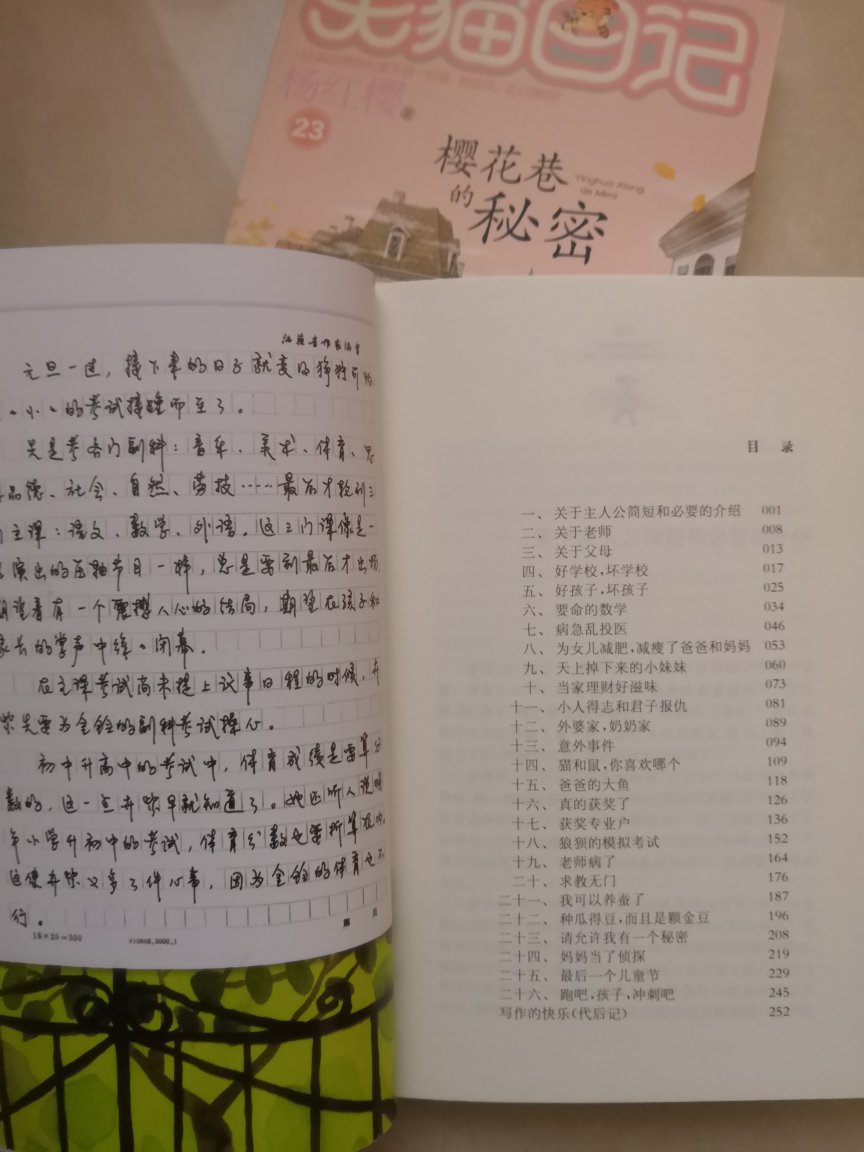 笑猫日记
杨红樱 著
23
樱花巷
Yinghua Xiang
de Mimi
的秘密
元旦一过，接下来的日子就变得狰狞可怕，
小小的考试接踵而至了。
先是考各门副科：音乐、美术、体育、思
品德、社会、自然、劳技……最后才轮到三
门主课：语文、数学、外语。这三门课像是一
演出的压轴节目一样，总是要到最后才出场，
期望着有一个震撼人心的结局，期望在孩子和
家长的掌声中徐徐闭幕。
在主课考试尚未提上议事日程的时候，卉
紫先要为金铃的副科考试操心。
初中升高中的考试中，体育成绩是要算分
数的，这一点卉紫早就知道了。她还听人说明
年小学升初中的考试，体育分数也要折算在内，
这使卉紫又多了件心事，因为金铃的体育也不
行。
第 页
15×20=300
目 录
一、关于主人公简短和必要的介绍 001
二、关于老师 008
三、关于父母 013
四、好学校,坏学校 017
五、好孩子,坏孩子 025
六、要命的数学 034
七、病急乱投医 046
八、为女儿减肥,减瘦了爸爸和妈妈 053
九、天上掉下来的小妹妹 060
十、当家理财好滋味 073
十一、小人得志和君子报仇 081
十二、外婆家,奶奶家 089
十三、意外事件 094
十四、猫和鼠,你喜欢哪个 109
十五、爸爸的大鱼 118
十六、真的获奖了 126
十七、获奖专业户 136
十八、狼狈的模拟考试 152
十九、老师病了 164
二十、求教无门 176
二十一、我可以养蚕了 187
二十二、种瓜得豆,而且是颗金豆 196
二十三、请允许我有一个秘密 208
二十四、妈妈当了侦探 219
二十五、最后一个儿童节 229
二十六、跑吧,孩子,冲刺吧 245
写作的快乐(代后记) 252